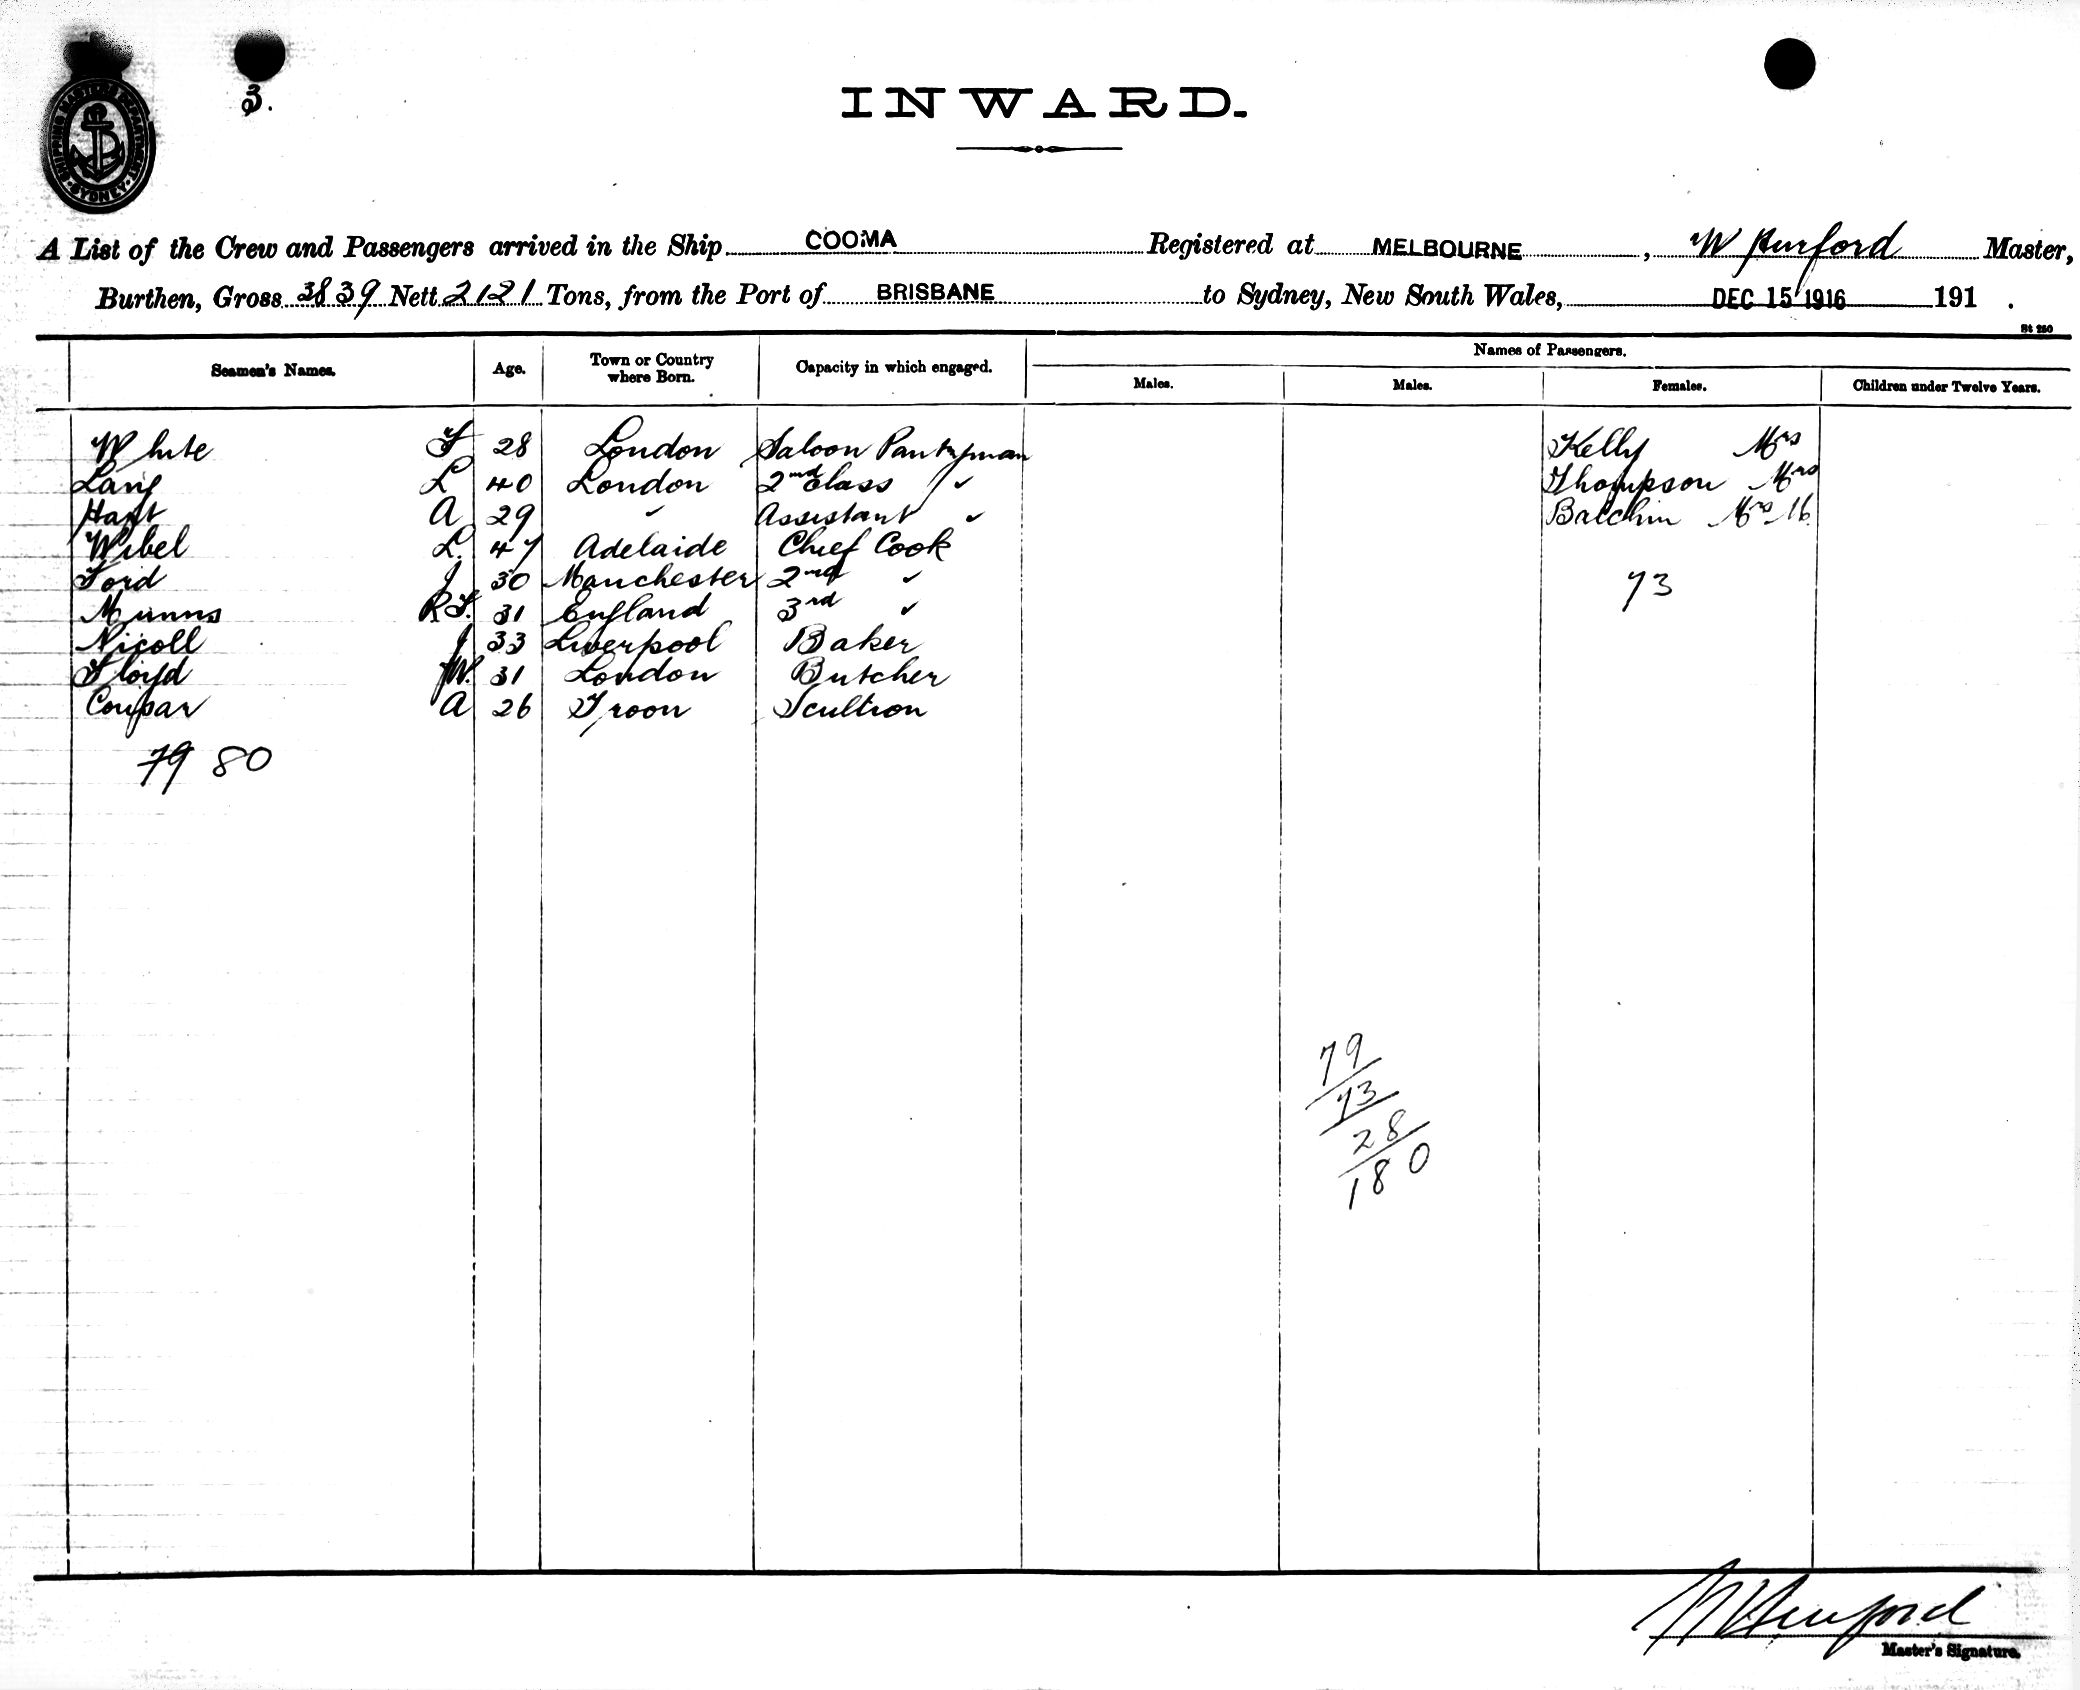 SHIPPING MASTER'S DEPARTMENT
SYDNEY
3.
INWARD.
A List of the Crew and Passengers arrived in the Ship COOMA Registered at MELBOURNE, W Hurford Master,
Burthen, Gross 3839 Nett 2121 Tons, from the Port of BRISBANE to Sydney, New South Wales, DEC 15 1916 191 .
St 250
Seamen's Names. Age. Town or Country where Born. Capacity in which engaged. Names of Passengers.
Males. Males. Females. Children under Twelve Years.
White F 28 London Saloon Pantryman Kelly Mrs
Lang L 40 London 2nd Class " Thompson Mrs
Hart A 29 " Assistant " Balchin Mrs 16
Wibel L. 47 Adelaide Chief Cook
Ford J 30 Manchester 2nd " 73
Munns R F. 31 England 3rd "
Nicoll J 33 Liverpool Baker
Floyd W. 31 London Butcher
Coupar A 26 Troon Scullion
79 80
79
73
28
180
W Hurford
Master's Signature.